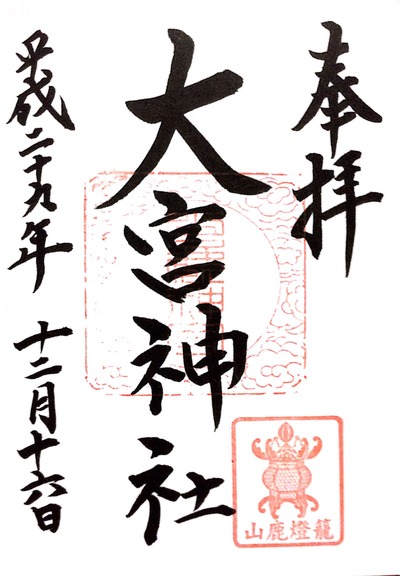 奉拝
大宮神社
平成二十九年 十二月十六日
山鹿燈籠